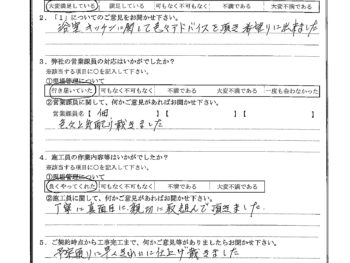 大変満足している 満足している 可も不可もなく 不満である 大変不満である
2．「1」についてのご意見をお聞かせ下さい。
浴室キッチンに関して色々アドバイスを頂き希望りに出来ました
3．弊社の営業職員の対応はいかがでしたか？
※該当する項目に○を記入して下さい。
①現場管理について
行き届いていた 可も不可もなく 不満である 大変不満である 一度も会わなかった
②営業職員に関して、何かご意見があればお聞かせ下さい。
営業職員名【 佃 】【 】【 】
色々と気配り戴きました
4．施工員の作業内容等はいかがでしたか？
※該当する項目に○を記入して下さい。
①現場管理について
良くやってくれた 可も不可もなく 不満である 大変不満である
②施工員に関して、何かご意見があればお聞かせ下さい。
丁寧に真面目に親切に取組んで頂きました。
5．ご契約時点から工事完工まで、何かご意見等がありましたらお聞かせ下さい。
予定通りに 早く きれいに仕上げ戴きました